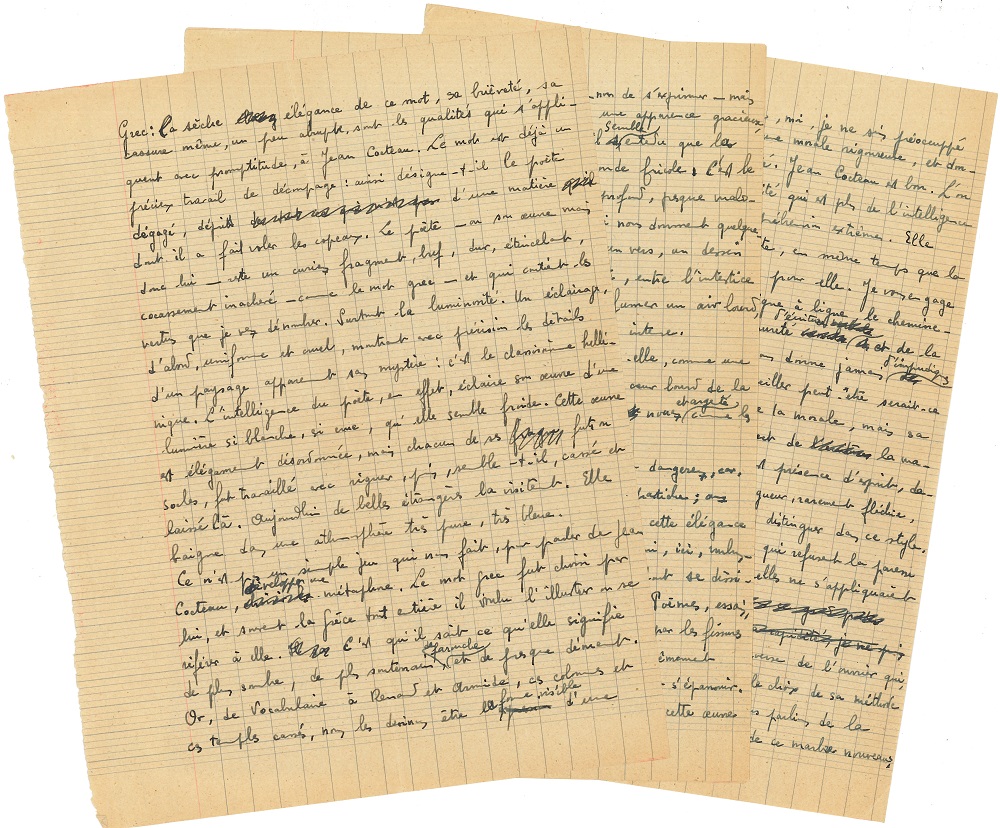 Grec : La sèche élégance de ce mot, sa brièveté, sa
cassure même, un peu abrupte, sont les qualités qui s'appli-
quent avec promptitude, à Jean Cocteau. Le mot est déjà un
précieux travail de découpage : ainsi désigne-t-il le poète
dégagé, dépris d'une matière
dont il a fait voler les copeaux. Le poète – ou son œuvre mais
donc lui – reste un curieux fragment, bref, dur, étincelant,
cocassement inachevé – comme le mot grec – et qui contient les
vertus que je veux dénombrer. Surtout la luminosité. Un éclairage,
d'abord, uniforme et cruel, montrant avec précision les détails
d'un paysage apparemment sans mystère : c'est le classicisme hellé-
nique. L'intelligence du poète, en effet, éclaire son œuvre d'une
lumière si blanche, si crue, qu'elle semble froide. Cette œuvre
est élégamment désordonnée, mais chacun de ses fûts ou
socles, fut travaillé avec rigueur, puis, semble-t-il, cassé et
laissé là. Aujourd'hui de belles étrangères la visitent. Elle
baigne dans une atmosphère très pure, très bleue.
Ce n'est pas un simple jeu qui nous fait, pour parler de Jean
Cocteau, développer une métaphore. Le mot grec fut choisi par
lui, et souvent la Grèce dont entière il voulu l'illustrer ou se
référer à elle. C'est qu'il sait ce qu'elle signifie
de plus sombre, de plus souterrain, de farouche et de presque dément.
Or, de Vocabulaire à Renaud et Armide, ces colonnes et
ces temples cassés, nous les devinons être la forme visible d'une
non de s'exprimer – mais
une apparence gracieuse,
Semble
entendu que la
monde frivole. C'est le
profond, presque malo-
nous donnent quelque
un vers, un dessin
, entre l'interstice
fumer un air lourd,
intense.
-elle, comme une
cœur lourd de la
chargeté
nous, comme les
- dangereux, car,
pastiche ;
cette élégance
ici,
ant se dissi-
Poèmes, essai,
par les fissures
émement
- s'épanouir.
cette œuvre
, moi, je ne suis préoccuppé
ne morale rigoureuse, et don-
. Jean Cocteau est bon. L'on
ité qui est plus de l'intelligence
préhension extrême. Elle
te, en même temps que la
pour elle. Je vous engage
igne à ligne, le chemine-
d'écriture
pureté et de la
donne jamais d'impudiques
eiller peut-être serait-ce
e la morale, mais sa
ect de la ma-
st présence d'esprit, de-
gueur, rarement fléchie,
distinguer dans ce style.
qui refusent la paresse
elles ne s'appliquaient
je ne puis
verse de l'ouvrier qui,
le choix de sa méthode
es parties de la
de ce marbre nouveau,